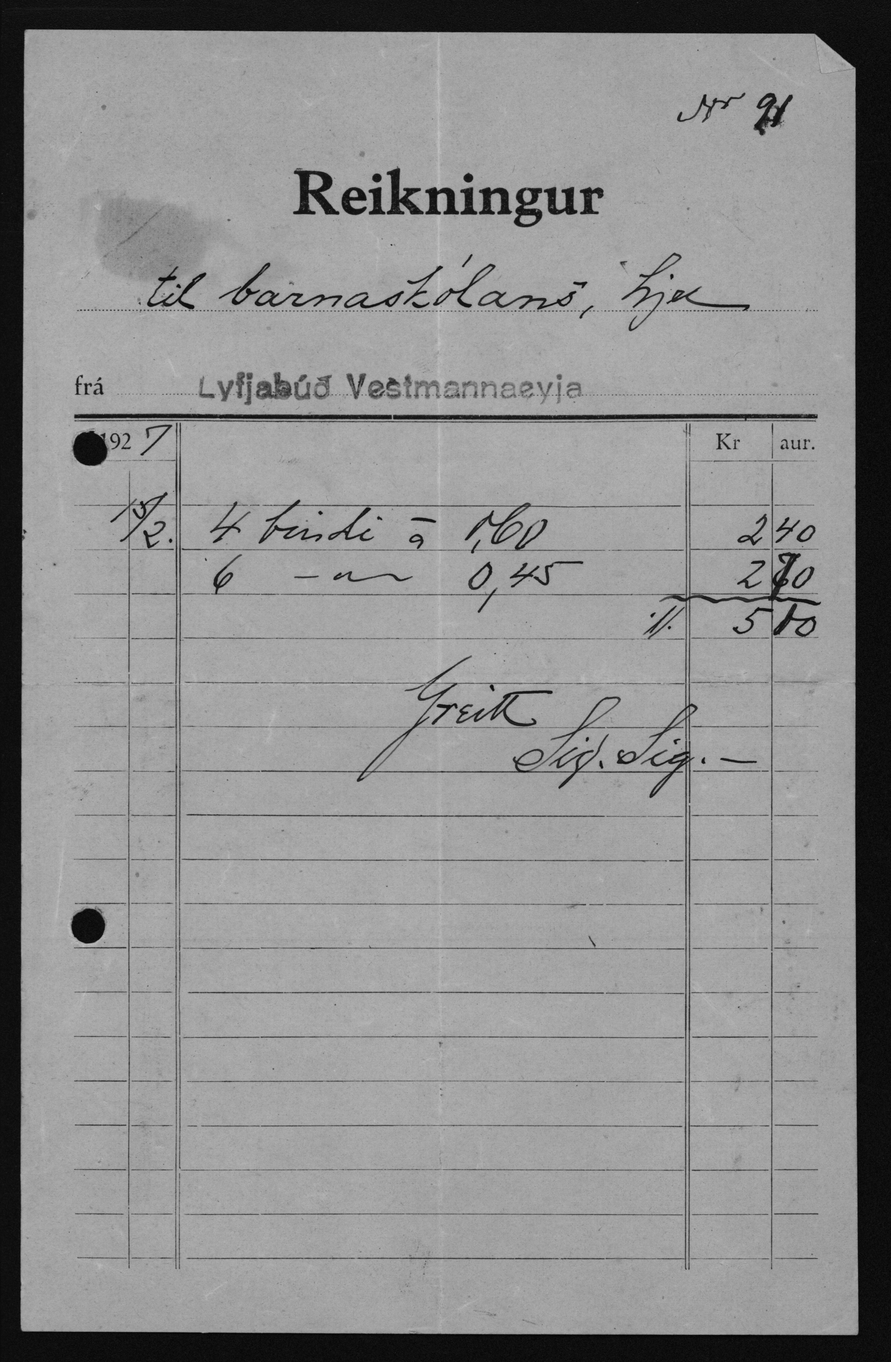 Nr 91
Reikningur
til barnaskólans, hjer
frá Lyfjabúð Vestmannaeyja
1927 Kr aur.
15/2. 4 bindi à 0,60 2 40
6 — " — 0,45 2 70
·/. 5 10
Greitt
Sig. Sig. —